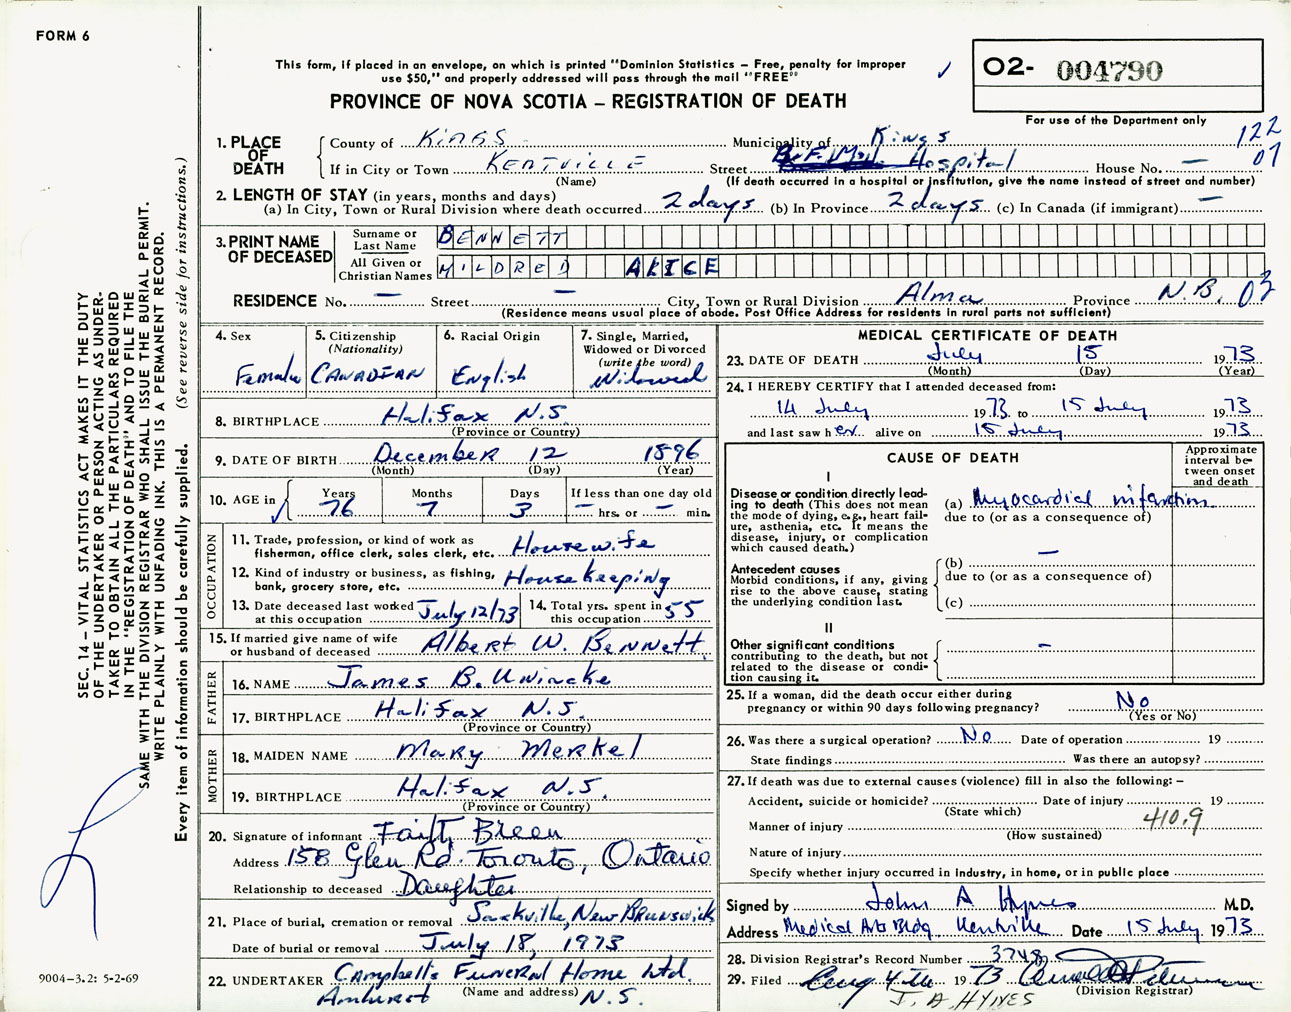 FORM 6
This form, if placed in an envelope, on which is printed "Dominion Statistics – Free, penalty for improper
use $50," and properly addressed will pass through the mail "FREE"
PROVINCE OF NOVA SCOTIA – REGISTRATION OF DEATH
02- 004790
For use of the Department only
1. PLACE OF DEATH
County of Kings Municipality of Kings 122
If in City or Town Kentville Street Hospital House No. — 07
(Name) (If death occurred in a hospital or institution, give the name instead of street and number)
2. LENGTH OF STAY (in years, months and days)
(a) In City, Town or Rural Division where death occurred 2 days (b) In Province 2 days (c) In Canada (if immigrant) —
3. PRINT NAME OF DECEASED
Surname or Last Name BENNETT
All Given or Christian Names MILDRED ALICE
RESIDENCE No. — Street — City, Town or Rural Division Alma Province N.B. 03
(Residence means usual place of abode. Post Office Address for residents in rural parts not sufficient)
4. Sex Female
5. Citizenship (Nationality) CANADIAN
6. Racial Origin English
7. Single, Married, Widowed or Divorced (write the word) Widowed
8. BIRTHPLACE Halifax N.S
(Province or Country)
9. DATE OF BIRTH December 12 1896
(Month) (Day) (Year)
10. AGE in Years 76 Months 7 Days 3 If less than one day old — hrs. or — min.
OCCUPATION
11. Trade, profession, or kind of work as fisherman, office clerk, sales clerk, etc. Housewife
12. Kind of industry or business, as fishing, bank, grocery store, etc. Housekeeping
13. Date deceased last worked at this occupation July 12/73
14. Total yrs. spent in this occupation 55
15. If married give name of wife or husband of deceased Albert W. Bennett
FATHER
16. NAME James B. Uniacke
17. BIRTHPLACE Halifax N.S.
(Province or Country)
MOTHER
18. MAIDEN NAME Mary Merkel
19. BIRTHPLACE Halifax N.S.
(Province or Country)
20. Signature of informant Faith Breen
Address 158 Glen Rd. Toronto, Ontario
Relationship to deceased Daughter
21. Place of burial, cremation or removal Sackville, New Brunswick
Date of burial or removal July 18, 1973
22. UNDERTAKER Campbell's Funeral Home Ltd.
Amherst (Name and address) N.S.
MEDICAL CERTIFICATE OF DEATH
23. DATE OF DEATH July 15 1973
(Month) (Day) (Year)
24. I HEREBY CERTIFY that I attended deceased from:
14 July 1973 to 15 July 1973
and last saw her alive on 15 July 1973
CAUSE OF DEATH
Approximate interval between onset and death
I
Disease or condition directly lead-
ing to death (This does not mean
the mode of dying, e.g., heart fail-
ure, asthenia, etc. It means the
disease, injury, or complication
which caused death.)
(a) Myocardial infarction
due to (or as a consequence of)
Antecedent causes
Morbid conditions, if any, giving
rise to the above cause, stating
the underlying condition last.
(b) —
due to (or as a consequence of)
(c)
II
Other significant conditions
contributing to the death, but not
related to the disease or condi-
tion causing it.
—
25. If a woman, did the death occur either during
pregnancy or within 90 days following pregnancy? No
(Yes or No)
26. Was there a surgical operation? No Date of operation 19
State findings Was there an autopsy?
27. If death was due to external causes (violence) fill in also the following: –
Accident, suicide or homicide? Date of injury 19
(State which)
Manner of injury 410.9
(How sustained)
Nature of injury
Specify whether injury occurred in industry, in home, or in public place
Signed by John A Hynes M.D.
Address Medical Arts Bldg Kentville Date 15 July 1973
28. Division Registrar's Record Number 3748
29. Filed Aug 4th 1973
(Division Registrar)
J. A. HYNES
SEC. 14 – VITAL STATISTICS ACT MAKES IT THE DUTY
OF THE UNDERTAKER OR PERSON ACTING AS UNDER-
TAKER TO OBTAIN ALL THE PARTICULARS REQUIRED
IN THE "REGISTRATION OF DEATH" AND TO FILE THE
SAME WITH THE DIVISION REGISTRAR WHO SHALL ISSUE THE BURIAL PERMIT.
WRITE PLAINLY WITH UNFADING INK. THIS IS A PERMANENT RECORD.
Every item of information should be carefully supplied. (See reverse side for instructions.)
9004-3.2: 5-2-69